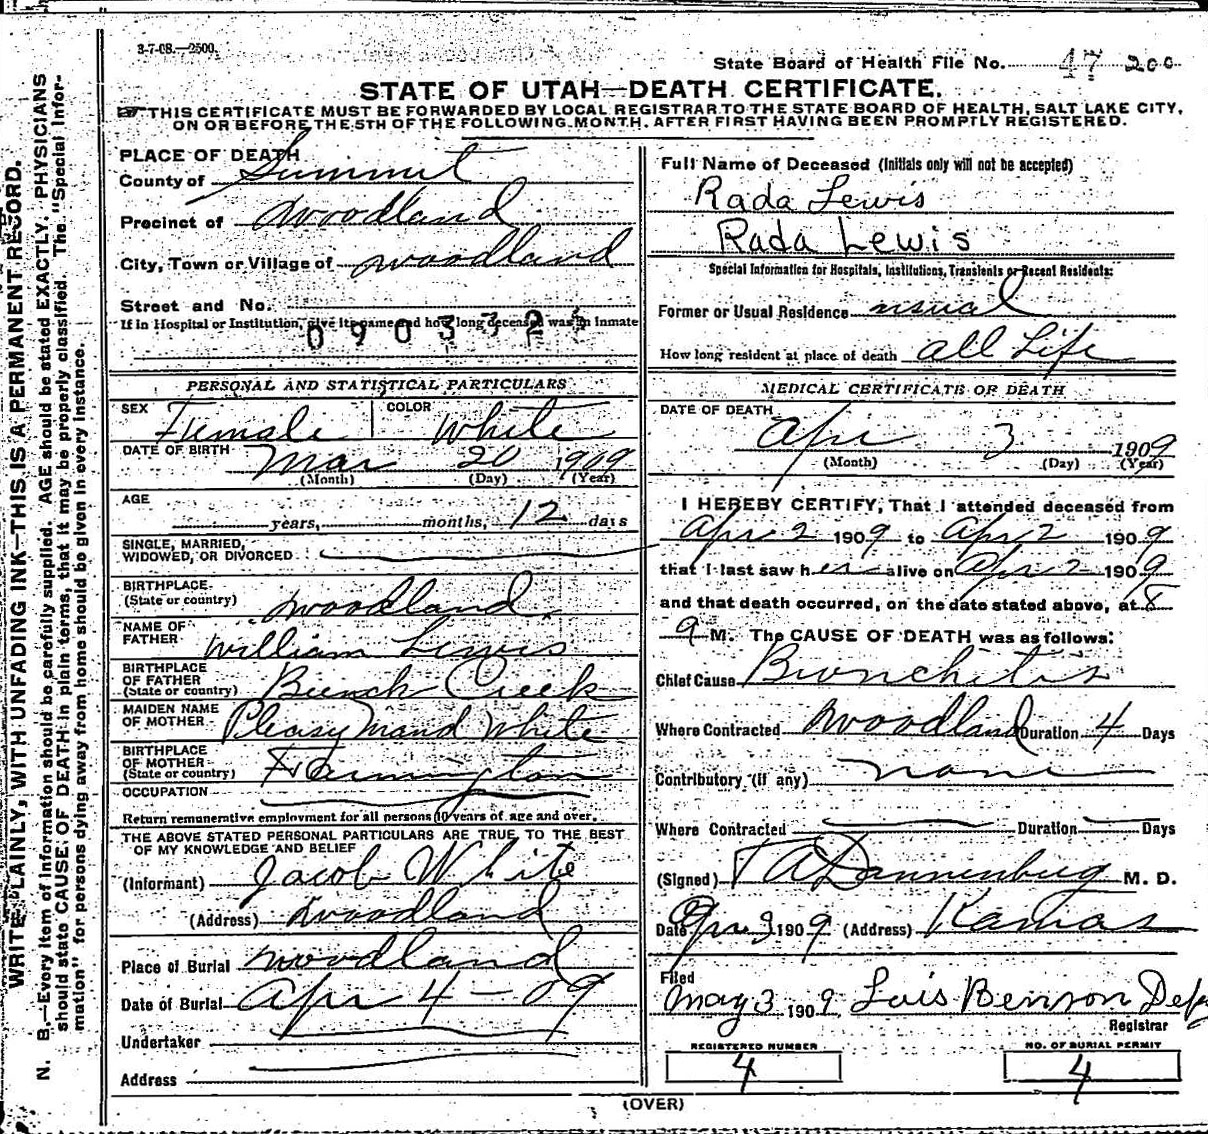 3-7-08.—2500.
State Board of Health File No. 47 200
STATE OF UTAH—DEATH CERTIFICATE.
THIS CERTIFICATE MUST BE FORWARDED BY LOCAL REGISTRAR TO THE STATE BOARD OF HEALTH, SALT LAKE CITY,
ON OR BEFORE THE 5TH OF THE FOLLOWING MONTH, AFTER FIRST HAVING BEEN PROMPTLY REGISTERED.
WRITE PLAINLY, WITH UNFADING INK—THIS IS A PERMANENT RECORD.
N. B.—Every item of information should be carefully supplied. AGE should be stated EXACTLY. PHYSICIANS
should state CAUSE OF DEATH in plain terms, that it may be properly classified. The "Special Infor-
mation" for persons dying away from home should be given in every instance.
PLACE OF DEATH
County of Summit
Precinct of Woodland
City, Town or Village of Woodland
Street and No.
If in Hospital or Institution, give its name and how long deceased was an inmate
090332
PERSONAL AND STATISTICAL PARTICULARS
SEX Female COLOR White
DATE OF BIRTH Mar 20 1909
(Month) (Day) (Year)
AGE
years, months, 12 days
SINGLE, MARRIED,
WIDOWED, OR DIVORCED
BIRTHPLACE
(State or country) Woodland
NAME OF
FATHER William Lewis
BIRTHPLACE
OF FATHER
(State or country) Bench Creek
MAIDEN NAME
OF MOTHER Pleasy Mand White
BIRTHPLACE
OF MOTHER
(State or country) Farmington
OCCUPATION
Return remunerative employment for all persons 10 years of age and over.
THE ABOVE STATED PERSONAL PARTICULARS ARE TRUE TO THE BEST
OF MY KNOWLEDGE AND BELIEF
(Informant) Jacob White
(Address) Woodland
Place of Burial Woodland
Date of Burial Apr 4 - 09
Undertaker
Address
Full Name of Deceased (Initials only will not be accepted)
Rada Lewis
Rada Lewis
Special Information for Hospitals, Institutions, Transients or Recent Residents:
Former or Usual Residence usual
How long resident at place of death all Life
MEDICAL CERTIFICATE OF DEATH
DATE OF DEATH
Apr 3 1909
(Month) (Day) (Year)
I HEREBY CERTIFY, That I attended deceased from
Apr 2 1909 to Apr 2 1909
that I last saw her alive on Apr 2 1909
and that death occurred, on the date stated above, at 8
a M. The CAUSE OF DEATH was as follows:
Chief Cause Bronchitis
Where Contracted Woodland Duration 4 Days
Contributory (if any) none
Where Contracted Duration Days
(Signed) TA Dannenburg M. D.
Date Apr 3 1909 (Address) Kamas
Filed
May 3 1909 Lois Benson Dep
Registrar
REGISTERED NUMBER
4
NO. OF BURIAL PERMIT
4
(OVER)